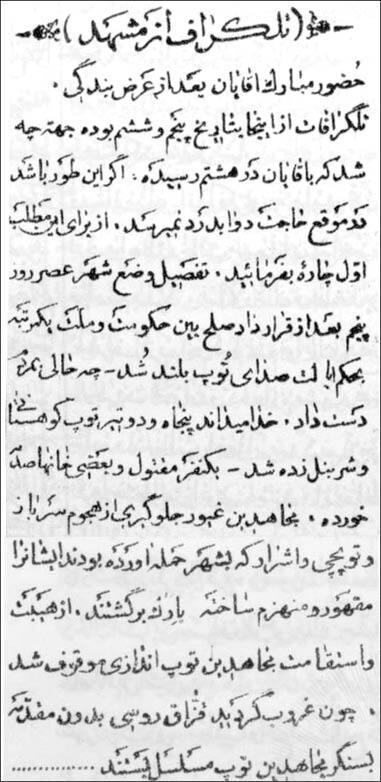 (تلگراف از مشهد)
حضور مبارك اقایان بعد از عرض بندگی.
تلگرافات از اینجا بتاریخ پنجم و ششم بوده جهة چه
شد که باقایان در هشتم رسیده: اگر این طور باشد
در موقع حاجت دوا بدرد نمیرسد. از برای این مطلب
اول چارهٔ بفرمائید. تفصیل وضع شهر عصر روز
پنجم بعد از قرارداد صلح بین حکومت و ملت یکمرتبه
بحکم ایالت صدای توپ بلند شد - چه حالی بمردم
دست داد. خدا میداند پنجاه و دو تیر توپ کوهستانی
و شربنل زده شد - یکنفر مقتول و بعضی خانها صدمه
خورده. مجاهدین غیور جلوگیری از هجوم سرباز
و توپچی و اشرار که بشهر حمله اورده بودند ایشانرا
مقهور و منهزم ساخته بارك برگشتند. از هیبت
و استقامت مجاهدین توپ اندازی موقوف شد
. چون غروب گردید قزاق روسی بدون مقدمه
بسنگر مجاهدین توپ مسلسل بستند ..............